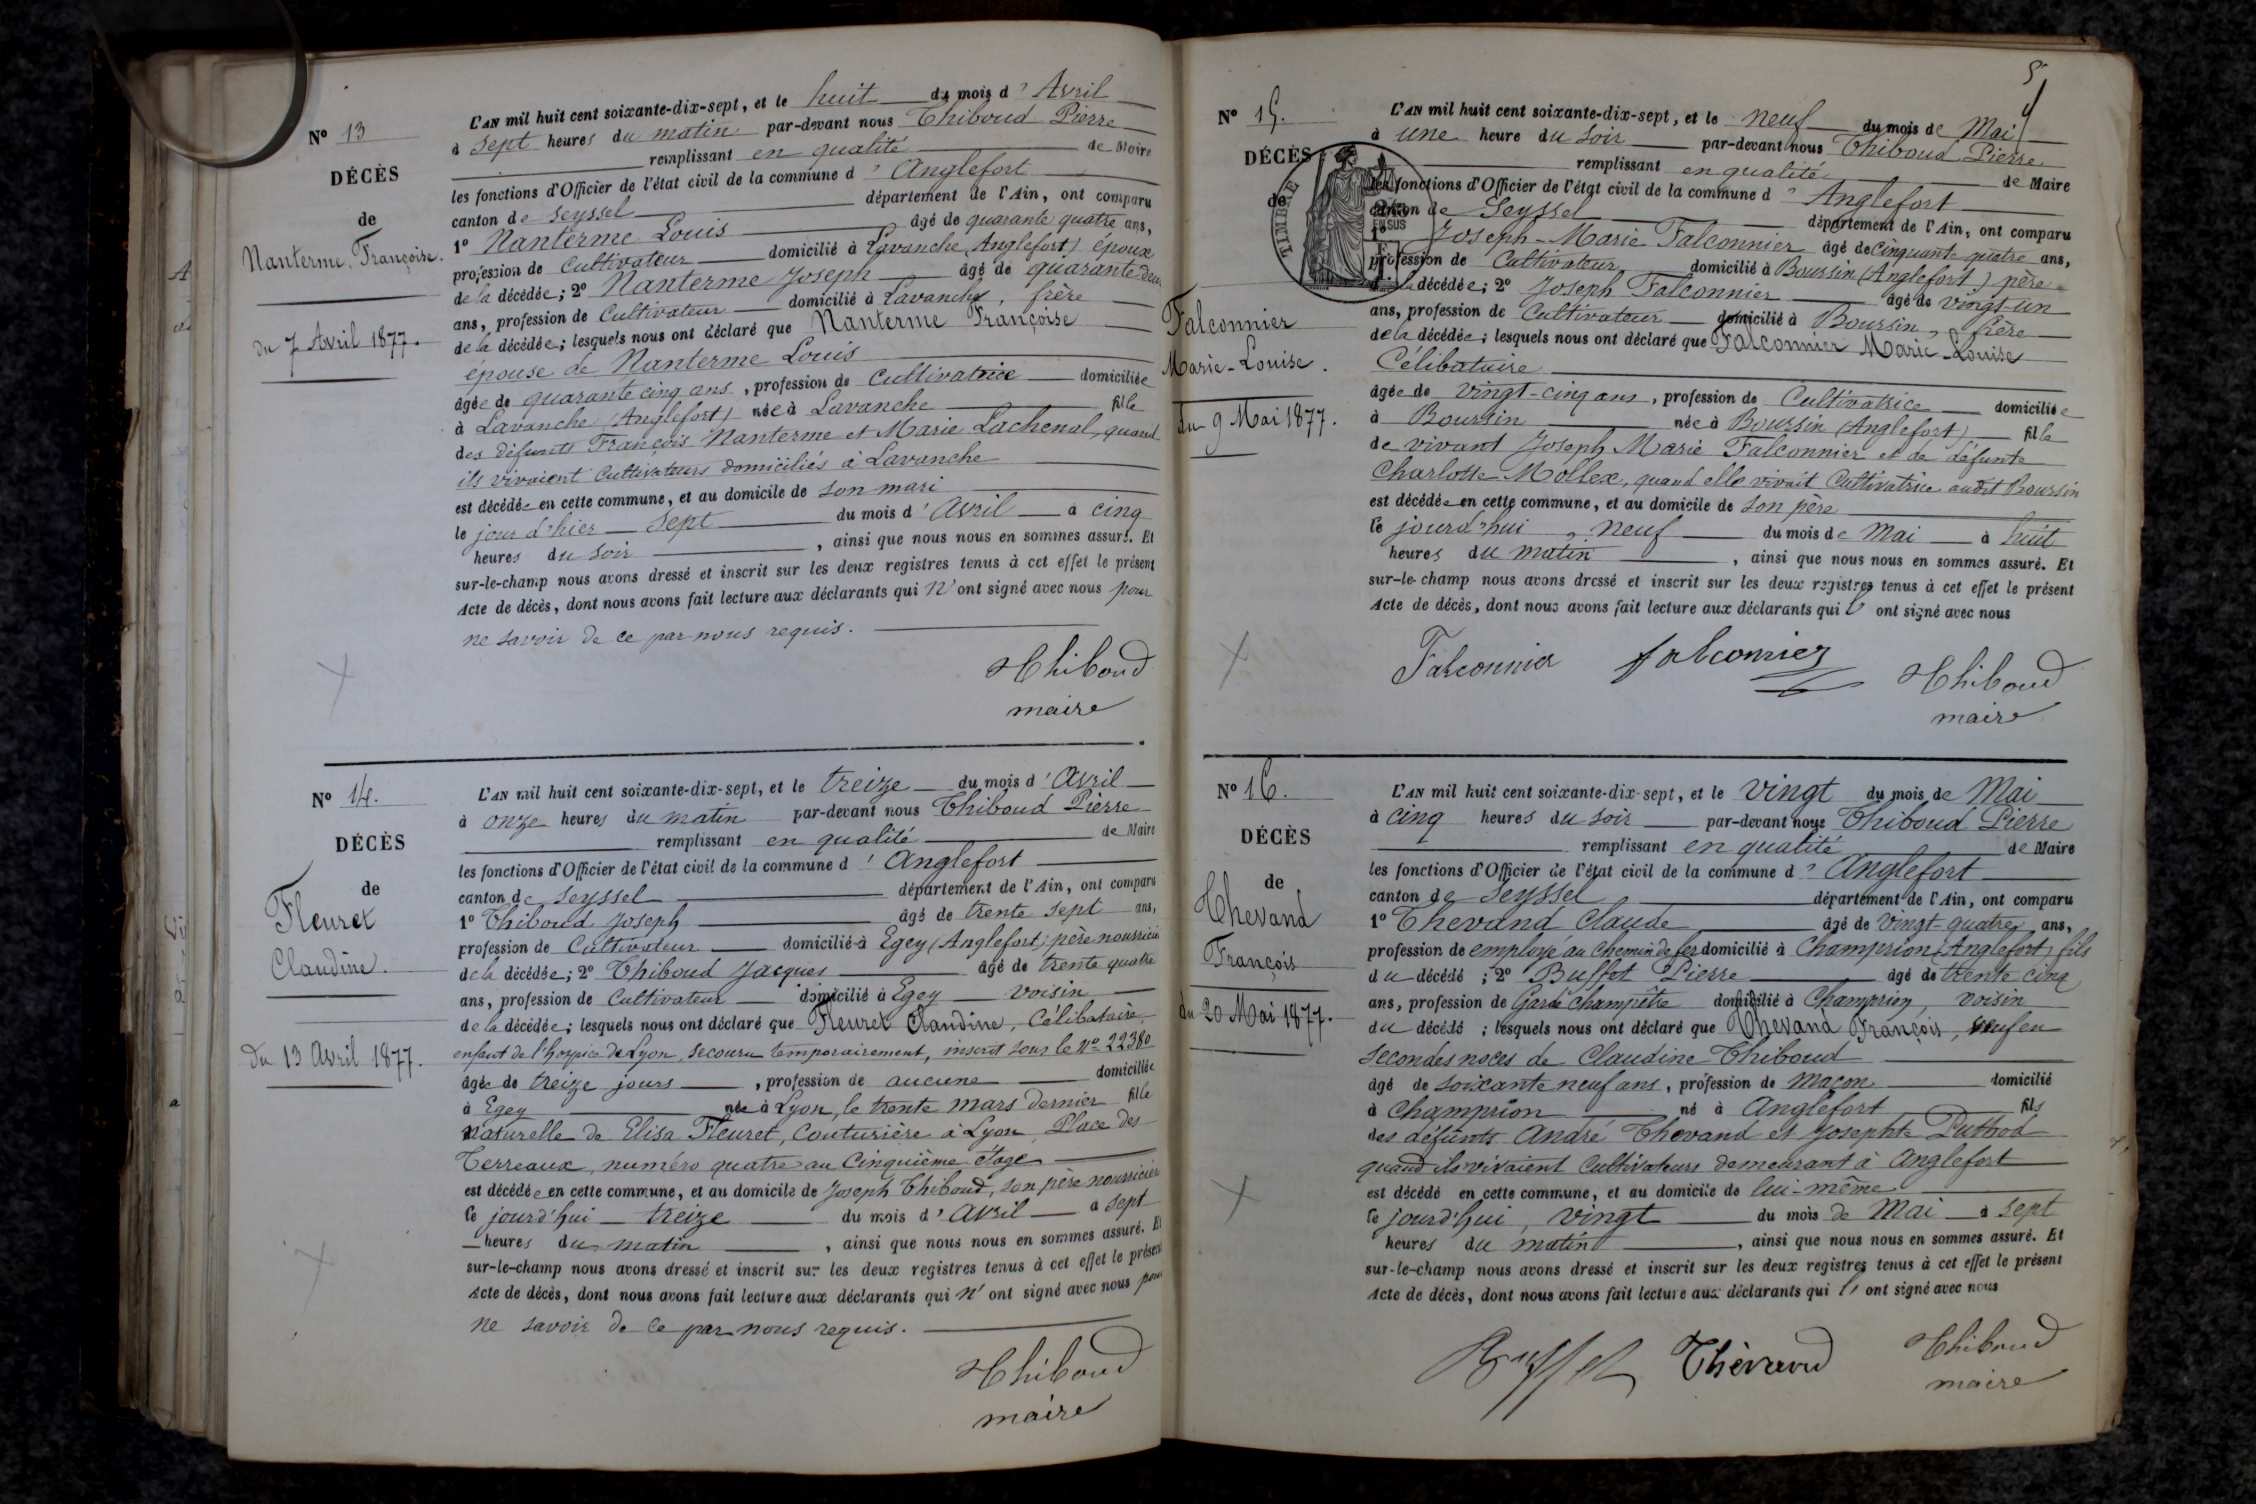 N° 13
DÉCÈS
de
Nanterme, Françoise.
du 7 Avril 1877.
L'AN mil huit cent soixante-dix-sept, et le huit du mois d'Avril
à sept heures du matin par-devant nous Thiboud Pierre
remplissant en qualité de Maire
les fonctions d'Officier de l'état civil de la commune d'Anglefort
canton de Seyssel département de l'Ain, ont comparu
1° Nanterme Louis âgé de quarante quatre ans,
profession de Cultivateur domicilié à Lavanche (Anglefort) époux
de la décédée; 2° Nanterme Joseph âgé de quarante-deux
ans, profession de Cultivateur domicilié à Lavanche, frère
de la décédée; lesquels nous ont déclaré que Nanterme Françoise
épouse de Nanterme Louis
âgée de quarante cinq ans, profession de Cultivatrice domiciliée
à Lavanche (Anglefort) née à Lavanche fille
des défunts François Nanterme et Marie Lachenal, quand
ils vivaient Cultivateurs domiciliés à Lavanche
est décédée en cette commune, et au domicile de son mari
le jour d'hier sept du mois d'Avril à cinq
heures du soir, ainsi que nous nous en sommes assuré. Et
sur-le-champ nous avons dressé et inscrit sur les deux registres tenus à cet effet le présent
Acte de décès, dont nous avons fait lecture aux déclarants qui n'ont signé avec nous pour
ne savoir de ce par nous requis.
Thiboud
maire
N° 14.
DÉCÈS
de
Fleuret
Claudine.
du 13 Avril 1877.
L'AN mil huit cent soixante-dix-sept, et le treize du mois d'Avril
à onze heures du matin par-devant nous Thiboud Pierre
remplissant en qualité de Maire
les fonctions d'Officier de l'état civil de la commune d'Anglefort
canton de Seyssel département de l'Ain, ont comparu
1° Thiboud Joseph âgé de trente sept ans,
profession de Cultivateur domicilié à Egey (Anglefort) père nourricier
de la décédée; 2° Thiboud Jacques âgé de trente quatre
ans, profession de Cultivateur domicilié à Egey voisin
de la décédée; lesquels nous ont déclaré que Fleuret Claudine, Célibataire,
enfant de l'hospice de Lyon, secouru temporairement, inscrit sous le N° 22380
âgée de treize jours, profession de aucune domiciliée
à Egey née à Lyon, le trente mars dernier fille
naturelle de Elisa Fleuret, Couturière à Lyon, Place des
Terreaux, numéro quatre au Cinquième étage
est décédée en cette commune, et au domicile de Joseph Thiboud, son père nourricier
le jourd'hui treize du mois d'Avril à sept
heures du matin, ainsi que nous nous en sommes assuré. Et
sur-le-champ nous avons dressé et inscrit sur les deux registres tenus à cet effet le présent
Acte de décès, dont nous avons fait lecture aux déclarants qui n'ont signé avec nous pour
ne savoir de ce par nous requis.
Thiboud
maire
5
N° 15.
DÉCÈS
de
TIMBRE
EN SUS
Falconnier
Marie-Louise.
du 9 Mai 1877.
L'AN mil huit cent soixante-dix-sept, et le neuf du mois de Mai
à une heure du soir par-devant nous Thiboud Pierre
remplissant en qualité de Maire
les fonctions d'Officier de l'état civil de la commune d'Anglefort
canton de Seyssel département de l'Ain, ont comparu
1° Joseph-Marie Falconnier âgé de cinquante quatre ans,
profession de Cultivateur domicilié à Boursin (Anglefort) père
de la décédée; 2° Joseph Falconnier âgé de vingt-un
ans, profession de Cultivateur domicilié à Boursin, frère
de la décédée; lesquels nous ont déclaré que Falconnier Marie-Louise
Célibataire
âgée de vingt-cinq ans, profession de Cultivatrice domiciliée
à Boursin née à Boursin (Anglefort) fille
de vivant Joseph Marie Falconnier et de défunte
Charlotte Mollex, quand elle vivait Cultivatrice audit Boursin
est décédée en cette commune, et au domicile de son père
le jourd'hui neuf du mois de Mai à huit
heures du matin, ainsi que nous nous en sommes assuré. Et
sur-le-champ nous avons dressé et inscrit sur les deux registres tenus à cet effet le présent
Acte de décès, dont nous avons fait lecture aux déclarants qui l'ont signé avec nous
Falconnier falconnier Thiboud
maire
N° 16.
DÉCÈS
de
Thevand
François
du 20 Mai 1877.
L'AN mil huit cent soixante-dix-sept, et le vingt du mois de Mai
à cinq heures du soir par-devant nous Thiboud Pierre
remplissant en qualité de Maire
les fonctions d'Officier de l'état civil de la commune d'Anglefort
canton de Seyssel département de l'Ain, ont comparu
1° Thevand Claude âgé de vingt-quatre ans,
profession de employé au chemin de fer domicilié à Champrion (Anglefort) fils
du décédé; 2° Buffet Pierre âgé de trente cinq
ans, profession de Garde champêtre domicilié à Champrion, voisin
du décédé; lesquels nous ont déclaré que Thevand François, veuf en
secondes noces de Claudine Thiboud
âgé de soixante neuf ans, profession de Maçon domicilié
à Champrion né à Anglefort fils
des défunts André Thevand et Josephte Puthod
quand ils vivaient Cultivateurs demeurant à Anglefort
est décédé en cette commune, et au domicile de lui-même
le jourd'hui, vingt du mois de Mai à sept
heures du matin, ainsi que nous nous en sommes assuré. Et
sur-le-champ nous avons dressé et inscrit sur les deux registres tenus à cet effet le présent
Acte de décès, dont nous avons fait lecture aux déclarants qui l'ont signé avec nous
Buffet Thévand Thiboud
maire